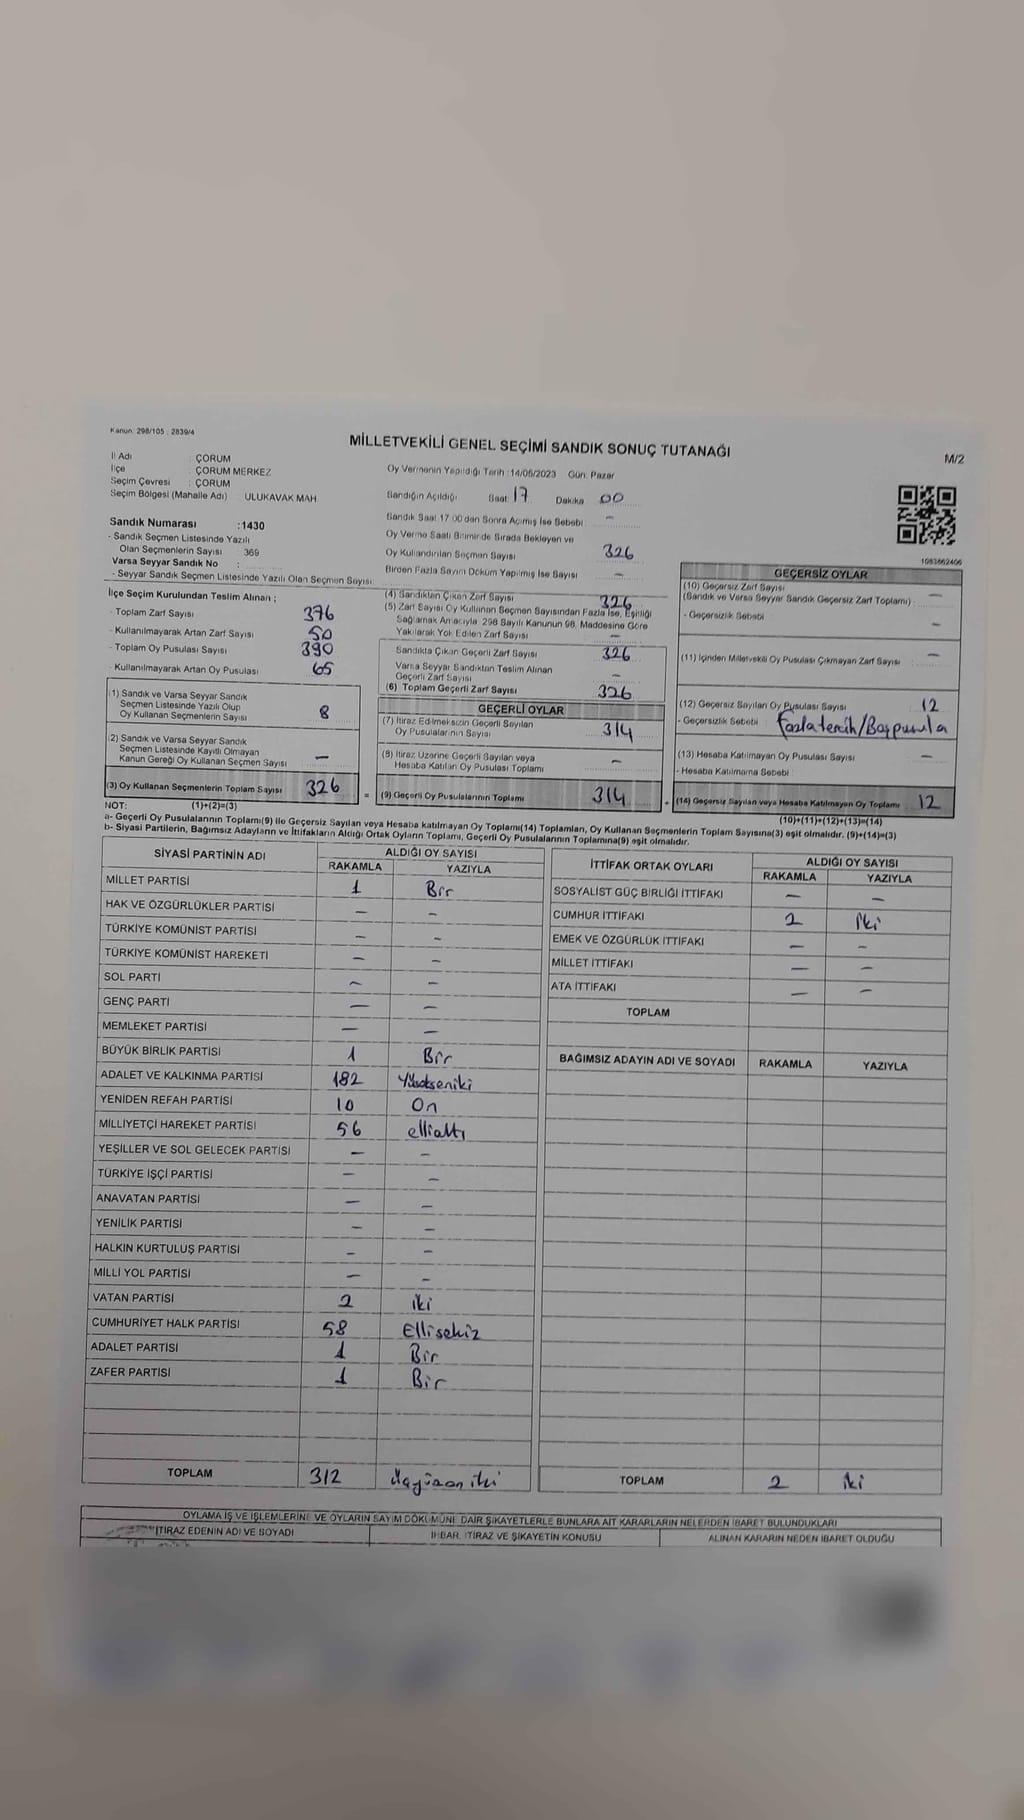 Kanun: 298/105 ; 2839/4
MİLLETVEKİLİ GENEL SEÇİMİ SANDIK SONUÇ TUTANAĞI
M/2
İl Adı : ÇORUM
İlçe : ÇORUM MERKEZ
Seçim Çevresi : ÇORUM
Seçim Bölgesi (Mahalle Adı) ULUKAVAK MAH.
Sandık Numarası :1430
- Sandık Seçmen Listesinde Yazılı
Olan Seçmenlerin Sayısı 369
Varsa Seyyar Sandık No :
- Seyyar Sandık Seçmen Listesinde Yazılı Olan Seçmen Sayısı:
Oy Vermenin Yapıldığı Tarih :14/05/2023 Gün: Pazar
Sandığın Açıldığı Saat 17 Dakika 00
Sandık Saat 17:00'den Sonra Açılmış İse Sebebi -
Oy Verme Saati Bitiminde Sırada Bekleyen ve
Oy Kullandırılan Seçmen Sayısı 326
Birden Fazla Sayım Döküm Yapılmış İse Sayısı -
1083662406
İlçe Seçim Kurulundan Teslim Alınan ;
- Toplam Zarf Sayısı 376
- Kullanılmayarak Artan Zarf Sayısı 50
- Toplam Oy Pusulası Sayısı 390
- Kullanılmayarak Artan Oy Pusulası 65
(1) Sandık ve Varsa Seyyar Sandık
Seçmen Listesinde Yazılı Olup
Oy Kullanan Seçmenlerin Sayısı 8
(2) Sandık ve Varsa Seyyar Sandık
Seçmen Listesinde Kayıtlı Olmayan
Kanun Gereği Oy Kullanan Seçmen Sayısı -
(3) Oy Kullanan Seçmenlerin Toplam Sayısı 326
(4) Sandıktan Çıkan Zarf Sayısı 326
(5) Zarf Sayısı Oy Kullanan Seçmen Sayısından Fazla İse, Eşitliği
Sağlamak Amacıyla 298 Sayılı Kanunun 98. Maddesine Göre
Yakılarak Yok Edilen Zarf Sayısı -
Sandıkta Çıkan Geçerli Zarf Sayısı 326
Varsa Seyyar Sandıktan Teslim Alınan
Geçerli Zarf Sayısı -
(6) Toplam Geçerli Zarf Sayısı 326
GEÇERLİ OYLAR
(7) İtiraz Edilmeksizin Geçerli Sayılan
Oy Pusulalarının Sayısı 314
(8) İtiraz Üzerine Geçerli Sayılan veya
Hesaba Katılan Oy Pusulası Toplamı -
= (9) Geçerli Oy Pusulalarının Toplamı 314
GEÇERSİZ OYLAR
(10) Geçersiz Zarf Sayısı
(Sandık ve Varsa Seyyar Sandık Geçersiz Zarf Toplamı) : -
- Geçersizlik Sebebi -
(11) İçinden Milletvekili Oy Pusulası Çıkmayan Zarf Sayısı : -
(12) Geçersiz Sayılan Oy Pusulası Sayısı 12
- Geçersizlik Sebebi : Fazla tercih/Boş pusula
(13) Hesaba Katılmayan Oy Pusulası Sayısı -
- Hesaba Katılmama Sebebi
+ (14) Geçersiz Sayılan veya Hesaba Katılmayan Oy Toplamı 12
NOT: (1)+(2)=(3)
(10)+(11)+(12)+(13)=(14)
a- Geçerli Oy Pusulalarının Toplamı(9) ile Geçersiz Sayılan veya Hesaba katılmayan Oy Toplamı(14) Toplamları, Oy Kullanan Seçmenlerin Toplam Sayısına(3) eşit olmalıdır. (9)+(14)=(3)
b- Siyasi Partilerin, Bağımsız Adayların ve İttifakların Aldığı Ortak Oyların Toplamı, Geçerli Oy Pusulalarının Toplamına(9) eşit olmalıdır.
SİYASİ PARTİNİN ADI ALDIĞI OY SAYISI
RAKAMLA YAZIYLA
MİLLET PARTİSİ 1 Bir
HAK VE ÖZGÜRLÜKLER PARTİSİ - -
TÜRKİYE KOMÜNİST PARTİSİ - -
TÜRKİYE KOMÜNİST HAREKETİ - -
SOL PARTİ - -
GENÇ PARTİ - -
MEMLEKET PARTİSİ - -
BÜYÜK BİRLİK PARTİSİ 1 Bir
ADALET VE KALKINMA PARTİSİ 182
YENİDEN REFAH PARTİSİ 10 On
MİLLİYETÇİ HAREKET PARTİSİ 56 elli altı
YEŞİLLER VE SOL GELECEK PARTİSİ - -
TÜRKİYE İŞÇİ PARTİSİ - -
ANAVATAN PARTİSİ - -
YENİLİK PARTİSİ - -
HALKIN KURTULUŞ PARTİSİ - -
MİLLİ YOL PARTİSİ - -
VATAN PARTİSİ 2 iki
CUMHURİYET HALK PARTİSİ 58 Ellisekiz
ADALET PARTİSİ 1 Bir
ZAFER PARTİSİ 1 Bir
TOPLAM 312 Üçyüzon iki
İTTİFAK ORTAK OYLARI ALDIĞI OY SAYISI
RAKAMLA YAZIYLA
SOSYALİST GÜÇ BİRLİĞİ İTTİFAKI - -
CUMHUR İTTİFAKI 2 İki
EMEK VE ÖZGÜRLÜK İTTİFAKI - -
MİLLET İTTİFAKI - -
ATA İTTİFAKI - -
TOPLAM
BAĞIMSIZ ADAYIN ADI VE SOYADI RAKAMLA YAZIYLA
TOPLAM 2 iki
OYLAMA İŞ VE İŞLEMLERİNE VE OYLARIN SAYIM DÖKÜMÜNE DAİR ŞİKAYETLERLE BUNLARA AİT KARARLARIN NELERDEN İBARET BULUNDUKLARI
İTİRAZ EDENİN ADI VE SOYADI İHBAR, İTİRAZ VE ŞİKAYETİN KONUSU ALINAN KARARIN NEDEN İBARET OLDUĞU